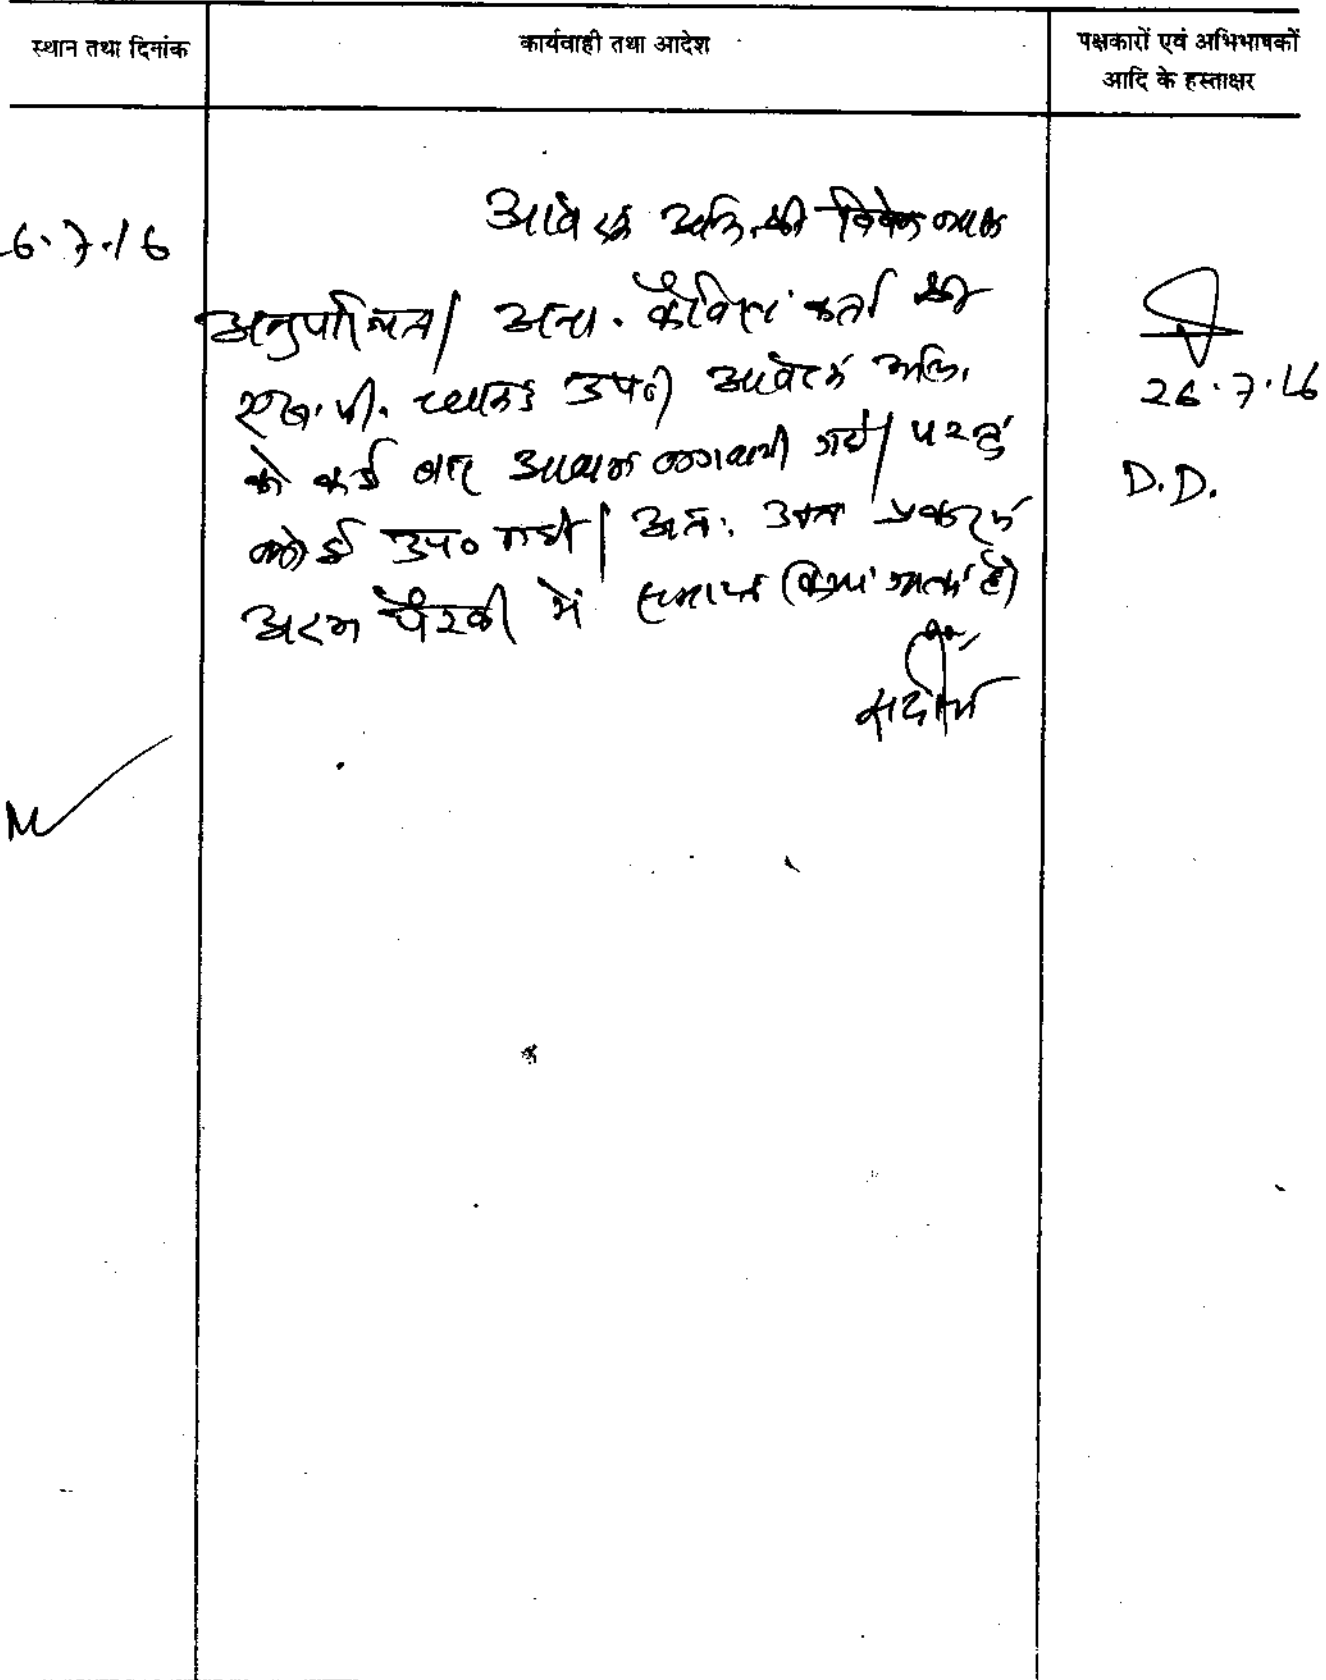 स्थान तथा दिनांक
कार्यवाही तथा आदेश
पक्षकारों एवं अभिभाषकों
आदि के हस्ताक्षर
6.7.16
आवेदक अभि. श्री विवेक व्यास
अनुपस्थित। अना. कैवियट कर्ता श्री
एच. पी. उप० आवेदक अभि.
को कई बार आवाज लगवायी गयी। परन्तु
कोई उप० नही। अतः उक्त प्रकरण
अदम पैरवी में समाप्त किया जाता है।
सदस्य
26.7.16
D.D.